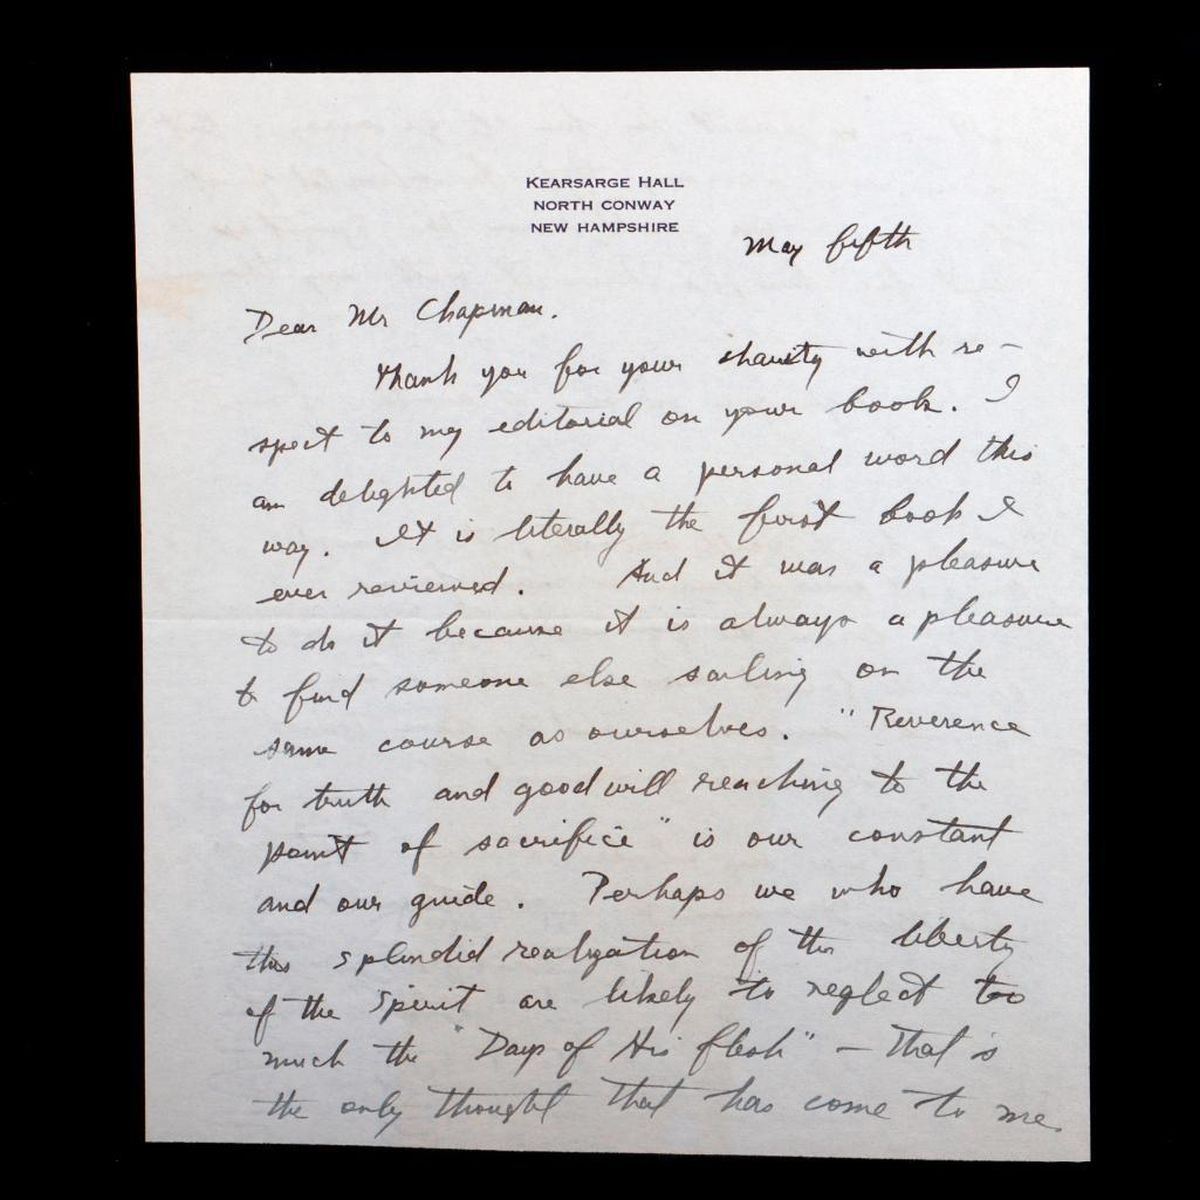 KEARSARGE HALL
NORTH CONWAY
NEW HAMPSHIRE
May fifth
Dear Mr Chapman.
Thank you for your charity with re-
spect to my editorial on your book. I
am delighted to have a personal word this
way. It is literally the first book I
ever reviewed. And it was a pleasure
to do it because it is always a pleasure
to find someone else sailing on the
same course as ourselves. "Reverence
for truth and good will reaching to the
point of sacrifice" is our constant
and our guide. Perhaps we who have
this splendid realization of the liberty
of the Spirit are likely to neglect too
much the "Days of His flesh" — That is
the only thought that has come to me.